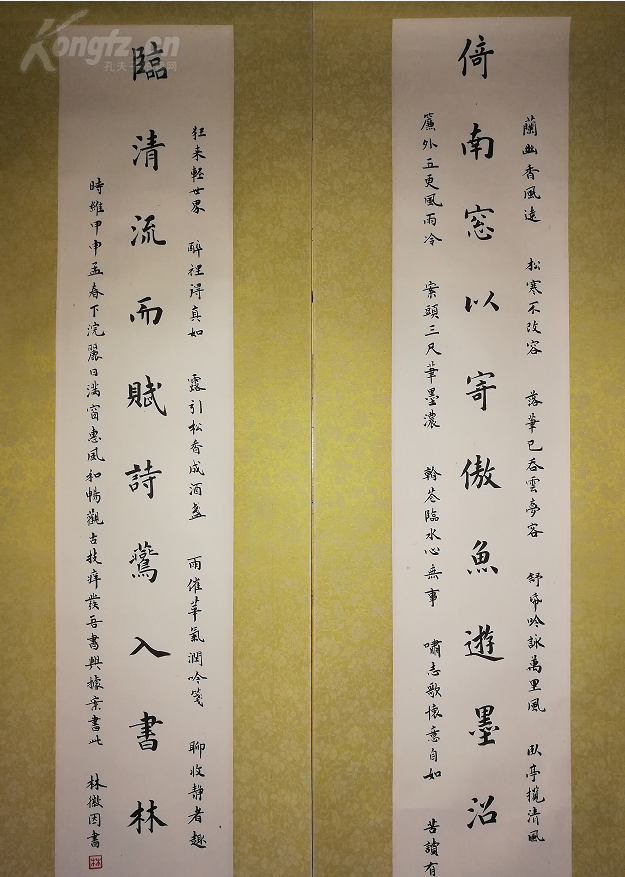 蘭幽香風遠 松寒不改容 落筆已吞雲夢客 舒帋吟詠萬里風 臥亭攬清風
倚南窓以寄傲魚遊墨沼
簾外五更風雨冷 案頭三尺筆墨濃 翰苍臨水心無事 嘯志歌懷意自如 苦讀有
狂来輕世界 醉裡得真如 露引松香成酒盏 雨催華氣潤吟箋 聊收静者趣
臨清流而賦詩鶯入書林
時維甲申孟春下浣麗日满窗惠風和暢觀古技痒發吾書興據案書此 林徽因書
Kongfz.cn
孔夫子旧书网